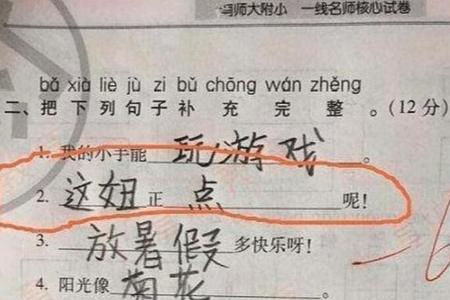 冯师大附小 一线名师核心试卷
bǎ xià liè jù zi bǔ chōng wán zhěng
二、把下列句子补充完整。(12分)
1. 我的小手能 玩游戏 。
2. 这妞正 点 呢!
3. 放暑假多快乐呀!
4. 阳光像 菊花